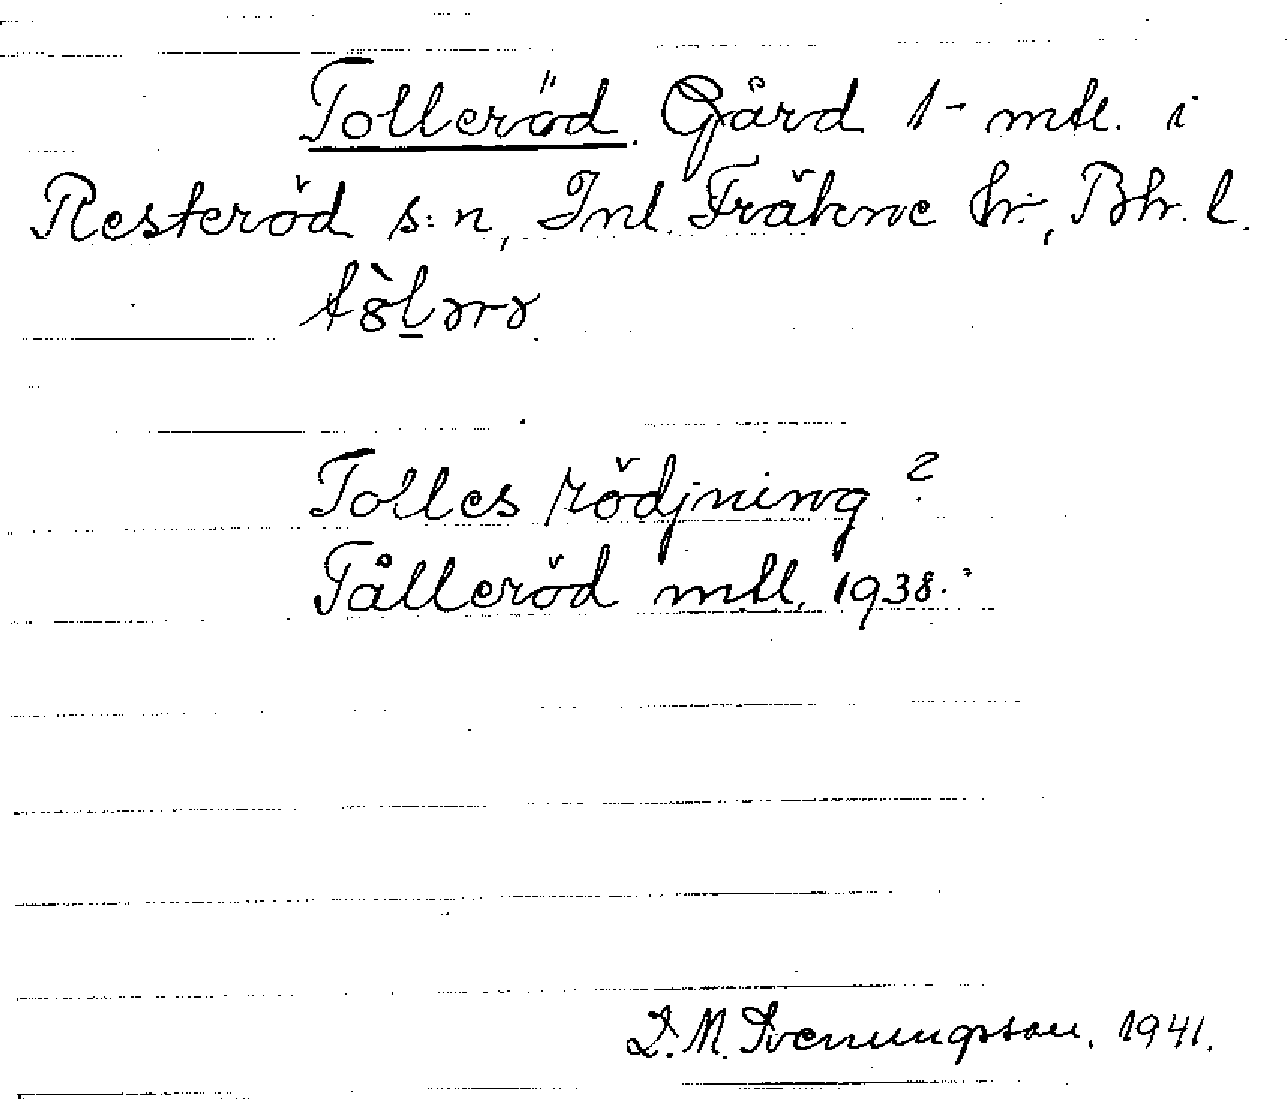 Tolleröd. Gård 1 - mtl. i
Resteröd s:n, Inl. Fräkne hr., Bhr. l.
Tolles rödjning?
Tålleröd mtl. 1938.
D. M. Svenungsson, 1941.